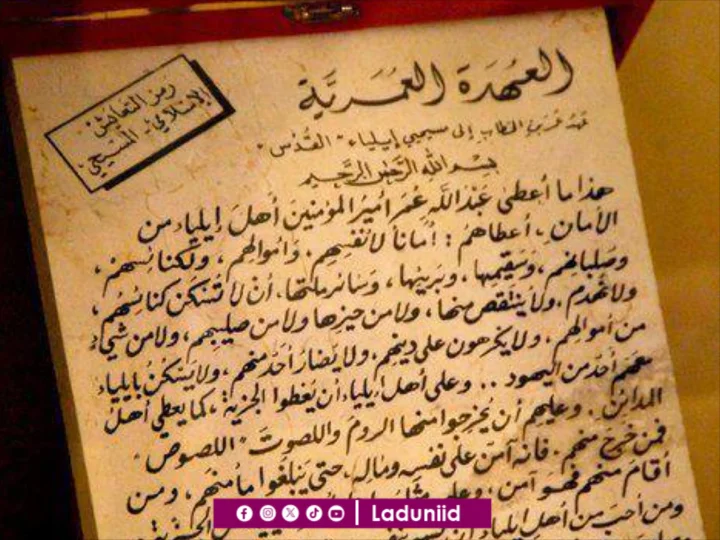 العهدة العمرية
رمز التعايش
الإسلامي - المسيحي
عهد عمر بن الخطاب إلى مسيحيي إيلياء "القدس"
بسم الله الرحمن الرحيم
هذا ما أعطى عبد الله عمر أمير المؤمنين أهل إيلياء من
الأمان، أعطاهم: أماناً لأنفسهم، وأموالهم، ولكنائسهم،
وصلبانهم، وسقيمها، وبريئها، وسائر ملتها. أن لا تسكن كنائسهم،
ولا تهدم، ولا ينتقص منها، ولا من حيزها ولا من صليبهم، ولا من شيء
من أموالهم، ولا يكرهون على دينهم، ولا يضار أحد منهم، ولا يسكن بإيلياء
معهم أحد من اليهود .. وعلى أهل إيلياء أن يعطوا الجزية، كما يعطي أهل
المدائن. وعليهم أن يخرجوا منها الروم واللصوت "اللصوص"
فمن خرج منهم. فإنه آمن على نفسه وماله، حتى يبلغوا مأمنهم، ومن
أقام منهم فهو آمن، وعليه
ومن أحب من أهل إيلياء أن
Laduniid